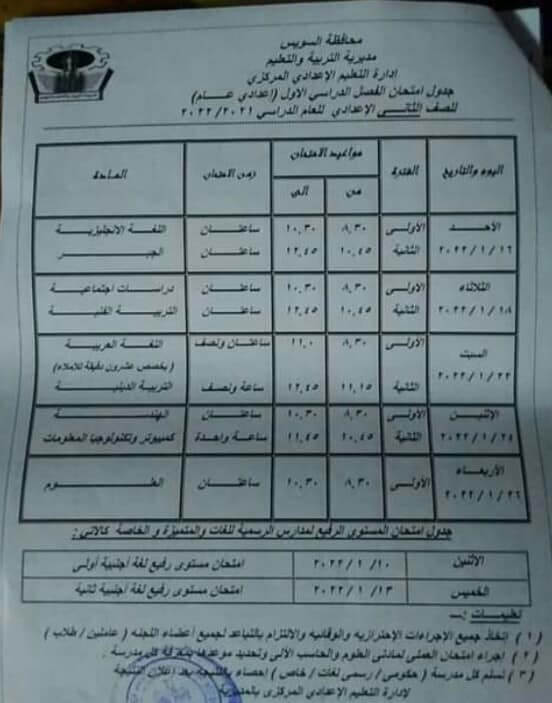 محافظة السويس
مديرية التربية والتعليم
إدارة التعليم الإعدادي المركزي
جدول امتحان الفصل الدراسي الأول (إعدادي عــام)
للصف الثاني الإعدادي للعام الدراسي ٢٠٢١/٢٠٢٢
اليوم والتاريخ الفترة مواعيد الامتحان زمن الامتحان المــادة
من إلى
الأحــد الأولى ٨,٣٠ ١٠,٣٠ ساعتــان اللغة الانجليزيــة
٢٠٢٢/١/١٦ الثانية ١٠,٤٥ ١٢,٤٥ ساعتــان الجبــر
الثلاثاء الأولى ٨,٣٠ ١٠,٣٠ ساعتــان دراسات اجتماعية
٢٠٢٢/١/١٨ الثانية ١٠,٤٥ ١٢,٤٥ ساعتــان التربية الفنية
السبت الأولى ٨,٣٠ ١١,٠ ساعتــان ونصف اللغة العربية
(يخصص عشرون دقيقة للإملاء)
٢٠٢٢/١/٢٢ الثانية ١١,١٥ ١٢,٤٥ ساعة ونصف التربية الدينية
الإثنيــن الأولى ٨,٣٠ ١٠,٣٠ ساعتــان الهندسة
٢٠٢٢/١/٢٤ الثانية ١٠,٤٥ ١١,٤٥ ساعة واحدة كمبيوتر وتكنولوجيا المعلومات
الأربعــاء الأولى ٨,٣٠ ١٠,٣٠ ساعتــان العلــوم
٢٠٢٢/١/٢٦
جدول امتحان المستوى الرفيع لمدارس الرسمية للغات والمتميزة و الخاصة كالاتي :
الأثنين ٢٠٢٢/١/١٠ امتحان مستوى رفيع لغة أجنبية أولى
الخميس ٢٠٢٢/١/١٣ امتحان مستوى رفيع لغة أجنبية ثانية
تعليمات :ــ
(١) إتخاذ جميع الإجراءات الإحترازية والوقائية والالتزام بالتباعد لجميع أعضاء اللجنه (عاملين / طلاب)
(٢) إجراء امتحان العملى لمادتى العلوم والحاسب الآلى وتحديد موعدها بمعرفة كل مدرسة .
(٣) تسلم كل مدرسة (حكومى / رسمى لغات / خاص) إحصاء بالنتيجة بعد إعلان النتيجة
لإدارة التعليم الإعدادي المركزي بالمديرية